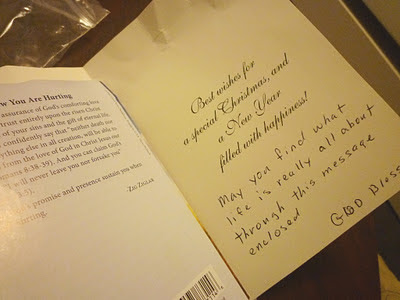 w You Are Hurting
assurance of God's comforting love
ant, entirely upon the risen Christ
of your sins and the gift of eternal life.
confidently say that " neither death nor
ything else in all creation, will be able to
from the love of God in Christ Jesus our
mans 8:38-39). And you can claim God's
will never leave you nor forsake you"
3:5).
s promise and presence sustain you when
urting.
-Zig Ziglar
Best wishes for
a special Christmas, and
a New Year
filled with happiness!
May you find what
life is really all about
through this message
enclosed
GOD Bless